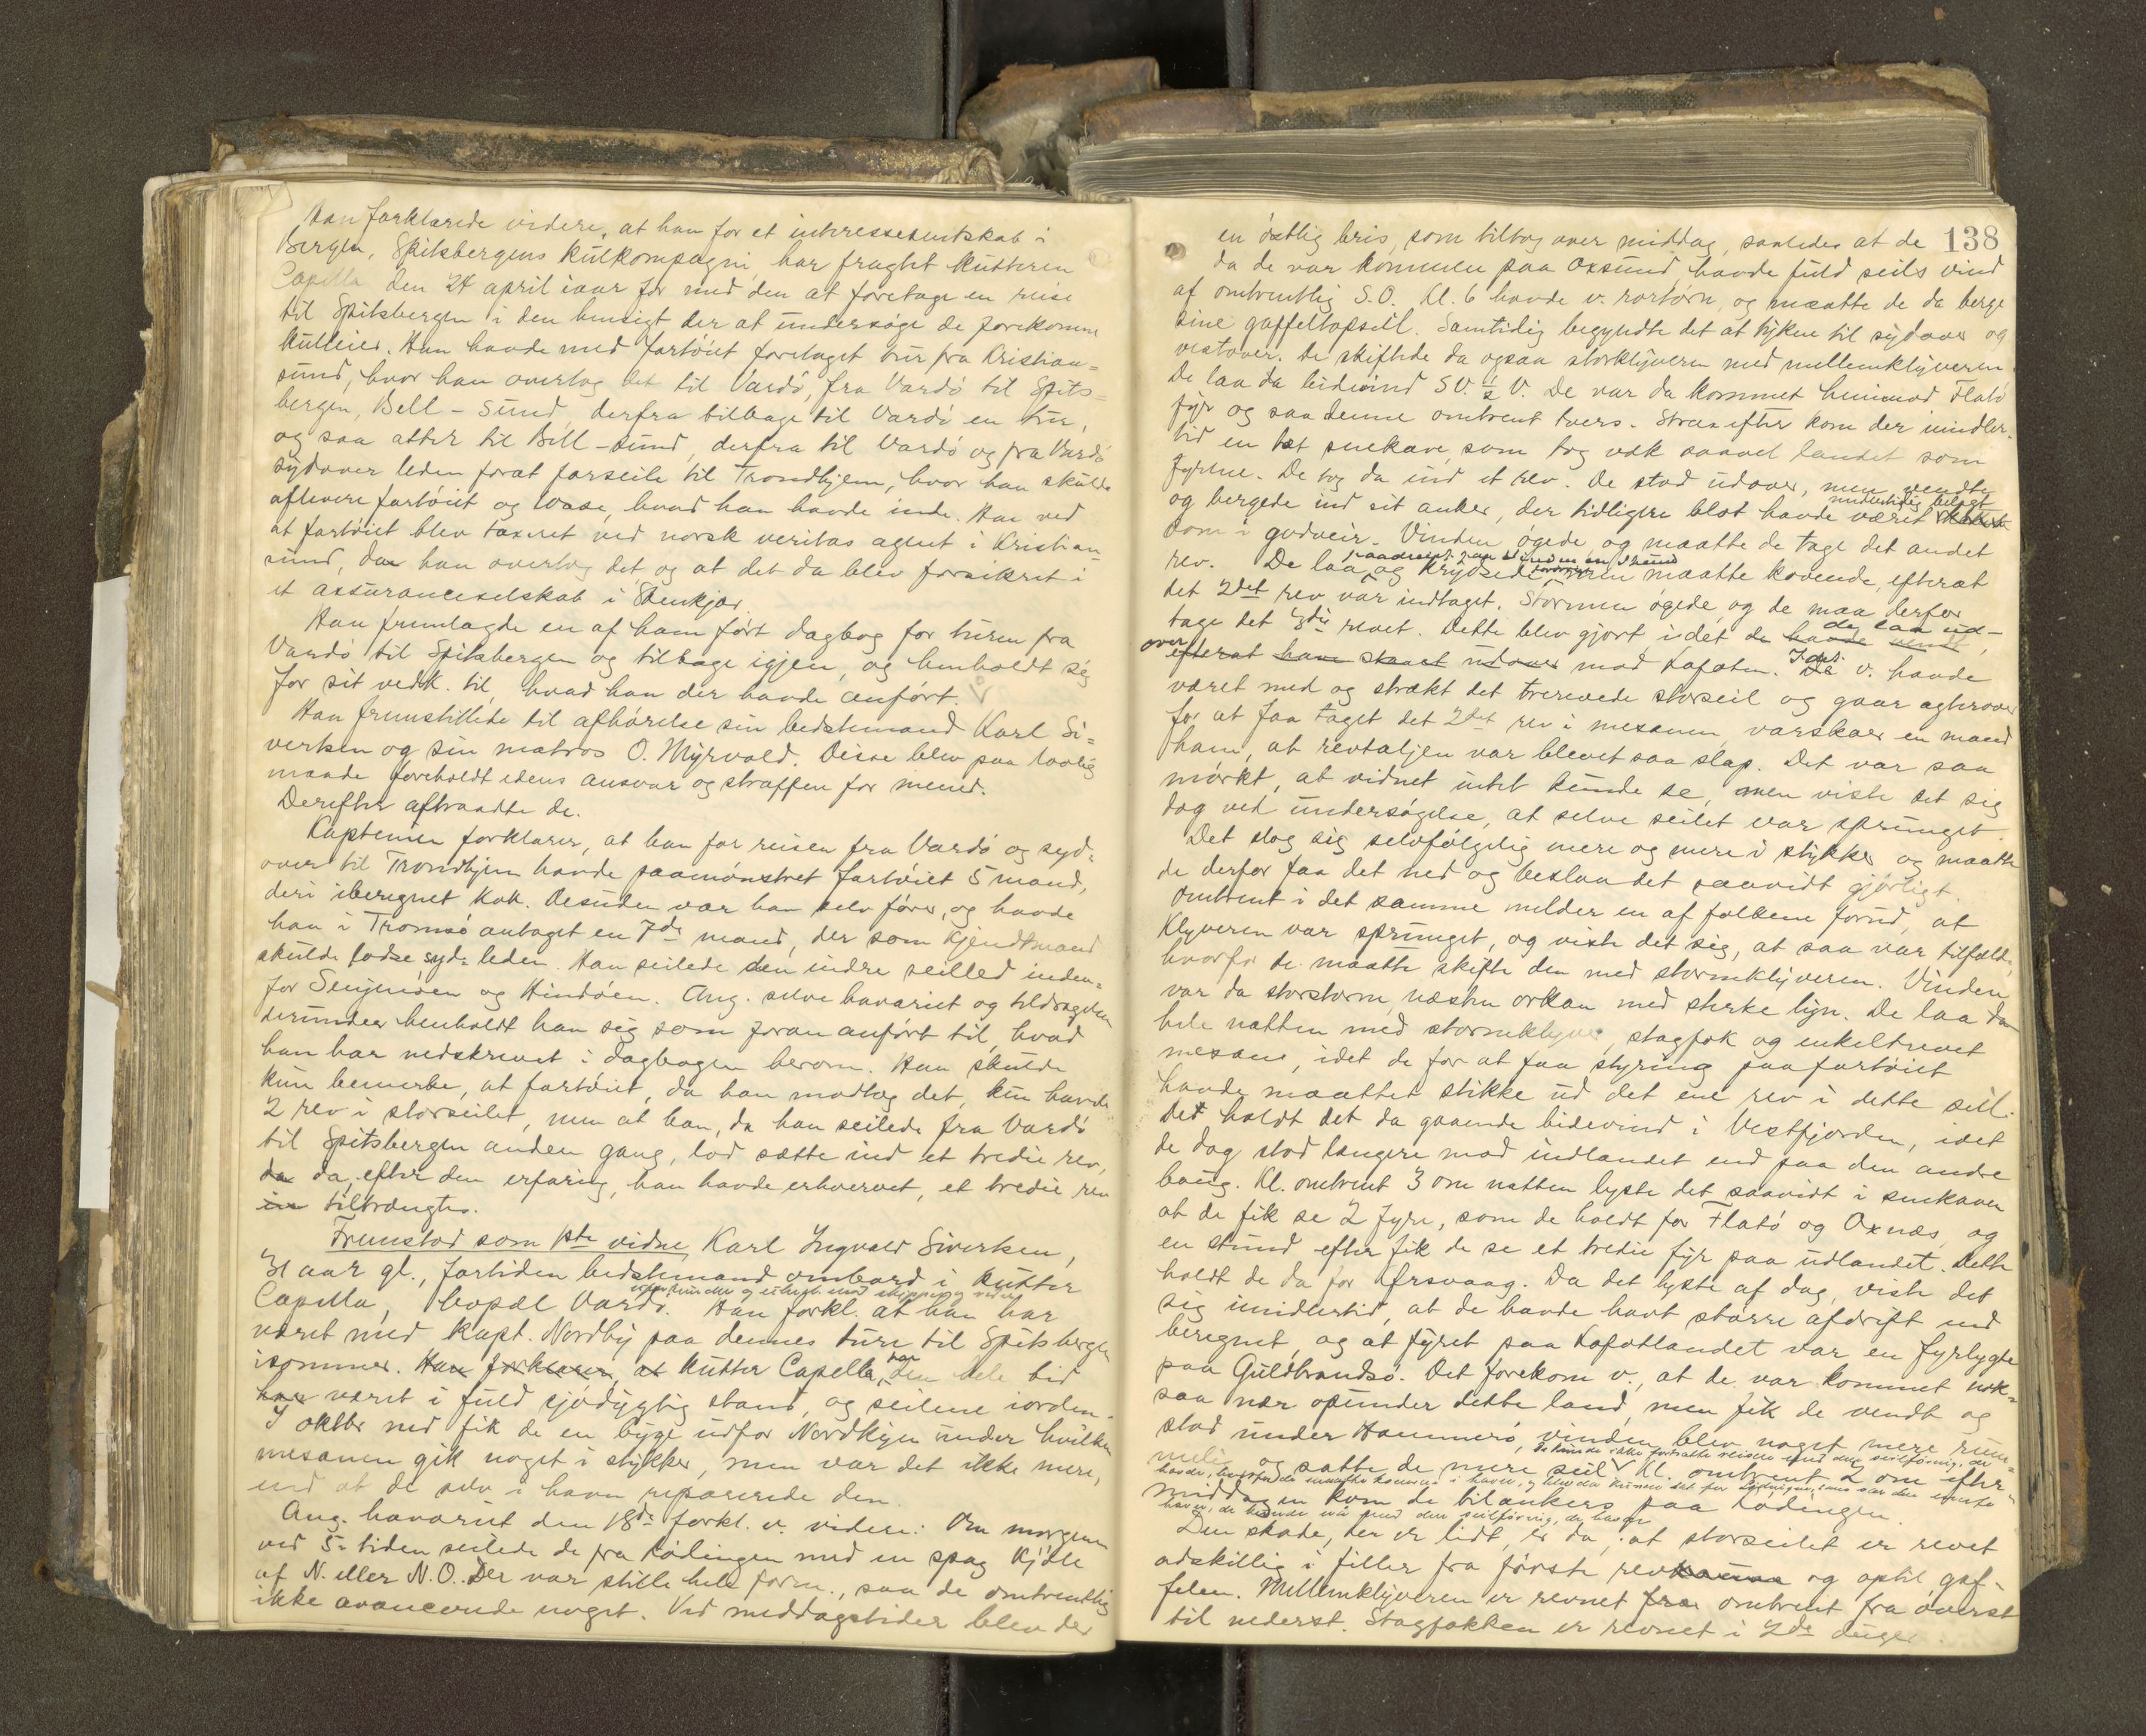 Han forklarede videre, at han for et interessentskab i
Bergen, Spitsbergens Kulkompagni, har fragtet kutteren
Capella den 24 april iaar for med den at foretage en reise
til Spitsbergen i den hensigt der at undersøge de forekomne
kulleier. Han havde med fartøiet foretaget tur fra Kristian=
sund, hvor han overtog det til Vardø, fra Vardø til Spits=
bergen, Bell-Sund, derfra tilbage til Vardø en tur,
og saa atter til Bell-sund, derfra til Vardø og fra Vardø
sydover leden forat farseile til Trondhjem, hvor han skulde
aflevere fartøiet og losse, hvad han havde inde. Han ved
at fartøiet blev taxeret ved norsk veritas agent i Kristian
sund, da han overtog det og at det da blev forsikret i
et assuranceselskab i Stenkjær.
Han fremlagde en af ham ført dagbog for turen fra
Vardø til Spitsbergen og tilbage igjen, og henholdt sig
for sit vedk. til, hvad han der havde anført.
Han fremstillede til afhørelse sin bedstemand Karl Si=
vertsen og sin matros O. Myrvold. Disse blev paa lovlig
maade foreholdt edens ansvar og straffen for mened.
Derefter aftraadte de.
Kapteinen forklarer, at han for reisen fra Vardø og syd=
over til Trondhjem havde paamønstret fartøiet 5 mand,
deri iberegnet kok. Desuden var han selv fører, og havde
han i Tromsø antaget en 7de mand, der som kjendtmand
skulde lodse syd= leden. Han seilede den indre seilled inden=
for Senjenøen og Hindøen. Ang. selve havariet og tildragelsen
derunder henholdt han sig som foran anført til, hvad
han har nedskrevet i dagbogen herom. Han skulde
kun bemerke, at fartøiet, da han modtog det, kun havde
2 rev i storseilet, men at han, da han seilede fra Vardø
til Spitsbergen anden gang, lod sætte ind et tredie rev,
da da, efter den erfaring, han havde erhvervet, et tredie rev
tiltrængtes.
Fremstod som 1ste vidne Karl Ingvald Sivertsen,
31 aar gl., fortiden bedstemand ombord i kutter
Capella, bopæl Vardø. Han forkl. at han har
været med kapt. Nordby paa dennes ture til Spitsbergen
isommer. Han forklarer, at kutter Capella har den hele tid
har været i fuld sjødygtig stand, og seilene iorden.
I oktbr ned fik de en byge udfor Nordkyn under hvilken
mesanen gik noget i stykker, men var det ikke mere,
end at de selv i havn reparerede den.
Ang. havariet den 18de forkl. v. videre: Om morgenen
ved 5-tiden seilede de fra Lødingen med en spag kjøle
af N. eller N.O. Der var stille hele form., saa de omtrentlig
ikke avancerede noget. Ved middagstider blev der
138
en østlig bris, som tiltog over middag, saaledes at de
da de var kommen paa Oxsund havde fuld seils vind
af omtrentlig S.O. Kl. 6 havde v. rortørn, og maatte de da berge
sine gaffeltopseil. Samtidig begyndte det at tykne til sydover og
vestover. De skiftede da ogsaa storklyveren med mellemklyveren.
De laa da bidevind SV. ½ V. De var da kommet henimod Flatø
fyr og saa denne omtrent tvers. Strax efter kom der imidler=
tid en tæt snekave, som tog væk saavel landet som
fyrene. De tog da ind et rev. De stod udover, men vendte
og bergede ind sit anker, der tidligere blot havde været midlertidig belagt
som i godveir. Vinden øgede og maatte de tage det andet
rev. De laa og krydsede maatte kovende, efterat
det 2det rev var indtaget. Stormen øgede, og de maa derfor
tage det 3die revet. Dette blev gjort idet de havde vendt, de laa ud-
over efterat have staaet udover mod Lofoten. Idet v. havde
været med og strækt det trerevede storseil og gaar agterover
for at faa taget det 2det rev i mesanen, varskoer en mand
ham, at revtaljen var blevet saa slap. Det var saa
mørkt, at vidnet intet kunde se, men viste det sig
dog ved undersøgelse, at selve seilet var sprunget.
Det slog sig selvfølgelig mere og mere i stykker og maatte
de derfor faa det ned og beslaa det saavidt gjørligt.
Omtrent i det samme melder en af folkene forud, at
klyveren var sprunget, og viste det sig, at saa var tilfælde,
hvorfor de maatte skifte den med stormklyveren. Vinden
var da storstorm, næsten orkan med sterke lyn. De laa da
hele natten med stormklyver, stagfok og enkeltrevet
mesane, idet de for at faa styring paa fartøiet
havde maattet stikke ud det ene rev i dette seil.
Det holdt det da gaaende bidevind i Vestfjorden, idet
de dog stod længere mod indlandet end paa den andre
baug. Kl. omtrent 3 om natten lyste det saavidt i snekaven
at de fik se 2 fyre, som de holdt for Flatø og Oxnæs, og
en stund efter fik de se et tredie fyr paa udlandet. Dette
holdt de da for Ørsvaag. Da det lyste af dag, viste det
sig imidlertid, at de havde havt større afdrift end
beregnet, og at fyret paa Lofotlandet var en fyrlygte
paa Guldbrandsø. Det forekom v., at de var kommet nok=
saa nær opunder dette land, men fik de vendt og
stod under Hammerø, vinden blev noget mere rum=
melig og satte de mere seil. Kl. omtrent 2 om efter=
de kunde ikke fortsætte reisen med den seilføring, de
havde, hvorfor de maatte komme i havn, og blev da kursen sat for Lødingen, som var den eneste
middagen kom de tilankers paa Lødingen.
havn, de kunde nå med den seilføring, de havde.
Den skade, der er lidt, er da, at storseilet er revet
adskillig i filler fra første rev og optil gaf=
felen. Mellemklyveren er revnet fra omtrent fra øverst
til nederst. Stagfokken er revnet i 2de duger.